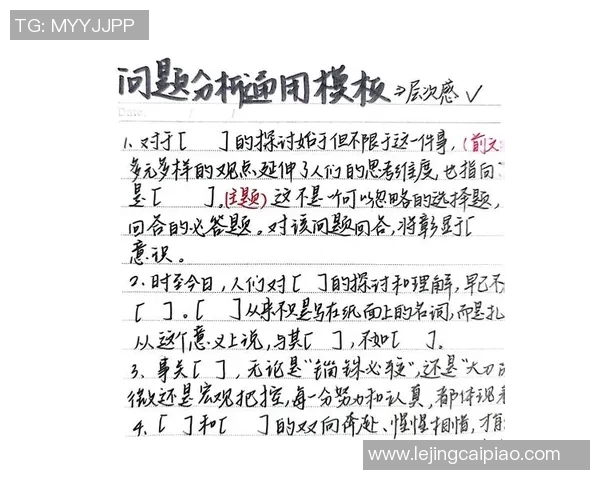 TG: MYYJJPP
问题分析通用模板→层次感✓
Date:
1. 对于[ ]的探讨始于但不限于这一件事,(前文
多元多样的观点延伸了人们的思考维度,也指向
是[ ]。(主题)这不是一个可以忽略的选择题,
回答的必答题。对该问题回答,将彰显于[
意识。
2. 时至今日,人们对[ ]的探讨和理解,早已不
[ ]。[ ]从来不只是写在纸面上的名词,而是扎
从这个意义上说,与其[ ],不如[ ]。
3. 事关[ ],无论是"锱铢必较",还是"大刀阔
微还是宏观把控,每一分努力和认真,都体现着
4. [ ]和[ ]的双向奔赴、惺惺相惜,才
www.lejingcaipiao.com